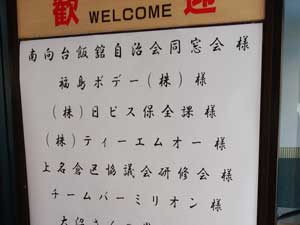 歓 迎
WELCOME
南向台飯舘自治会同窓会 様
福島ボデー(株) 様
(株)日ピス保全課 様
(株)ティーエムオー 様
上名倉区協議会研修会 様
チームバーミリオン 様